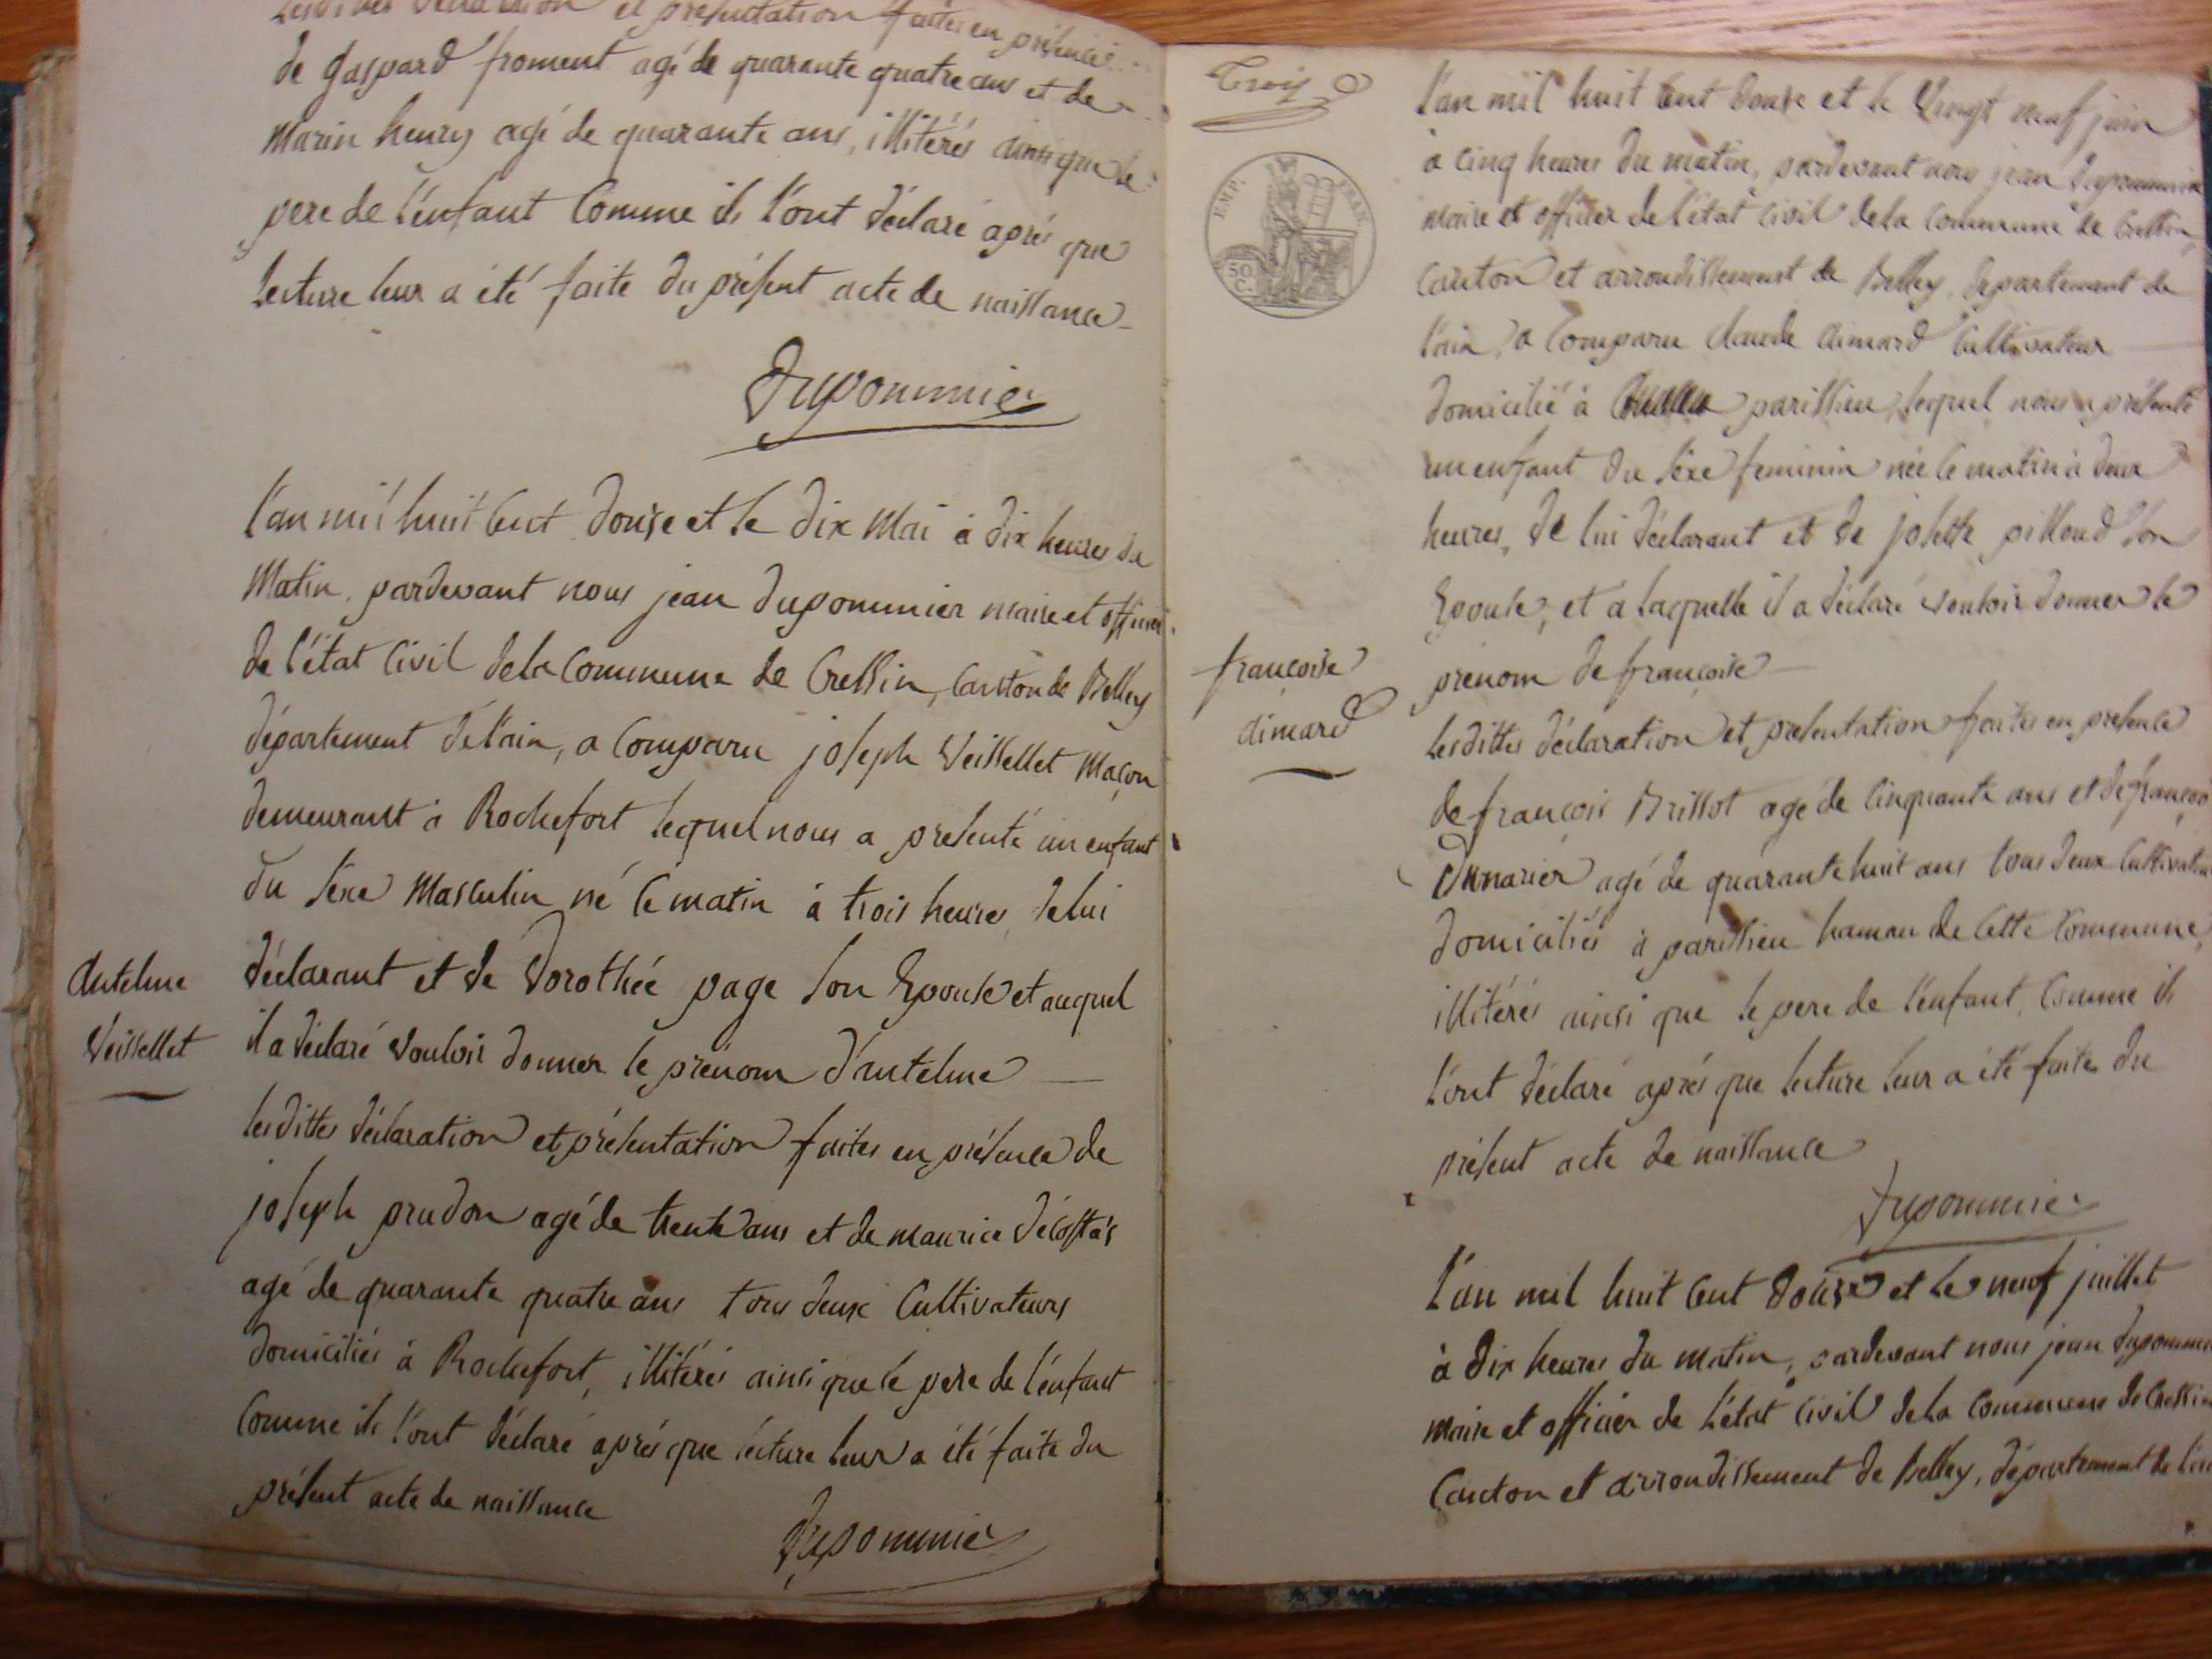 lesdittes déclaration et présentation faites en présence
de gaspard froment agé de quarante quatre ans et de
marin henry agé de quarante ans, illitérés ainsi que le
pere de l'enfant Comme ils l'ont déclaré aprés que
lecture leur a été faite du présent acte de naissance
Dupommier
l'an mil huit Cent douze et le dix Mai à dix heures du
Matin, pardevant nous jean dupommier maire et officier
de l'état Civil de la Commune de Cressin, Canton de Belley
département de l'ain, a Comparu joseph Veissellet Maçon
demeurant à Rochefort lequel nous a présenté un enfant
du séxe Masculin né Ce matin à trois heures, de lui
déclarant et de Dorothée page son Epouse et auquel
il a déclaré vouloir donner le prénom d'antelme
lesdittes déclaration et présentation faites en présence de
joseph prudon agé de trente ans et de maurice
agé de quarante quatre ans tous deux Cultivateurs
domiciliés à Rochefort, illitérés ainsi que le pere de l'enfant
Comme ils l'ont déclaré aprés que lécture leur a été faite du
présent acte de naissance
Dupommier
Antelme
Veissellet
Trois
EMP. FRAN.
50 C.
l'an mil huit Cent douze et le Vingt neuf juin
à cinq heures du matin, pardevant nous jean dupommier
maire et officier de l'état Civil de la Commune de Cressin,
Canton et arrondissement de Belley, département de
l'ain, a Comparu Claude aimard Cultivateur
domicilié à parissieu, lequel nous a présenté
un enfant du séxe feminin née Ce matin à deux
heures, de lui déclarant et de josette pilloud son
Epouse, et a laquelle il a déclaré vouloir donner le
prénom de françoise
lesdittes déclaration et présentation faites en présence
de françois Brillot agé de Cinquante ans et de françois
agé de quarante huit ans tous deux Cultivateurs
domiciliés à parissieu hamau de Cette Commune,
illitérés ainsi que le pere de l'enfant, Comme ils
l'ont déclaré aprés que lecture leur a été faite du
présent acte de naissance
Dupommier
françoise
aimard
l'an mil huit Cent douze et le neuf juillet
à dix heures du matin, pardevant nous jean dupommier
maire et officier de l'état Civil de la Commune de Cressin
Canton et arrondissement de Belley, département de l'ain